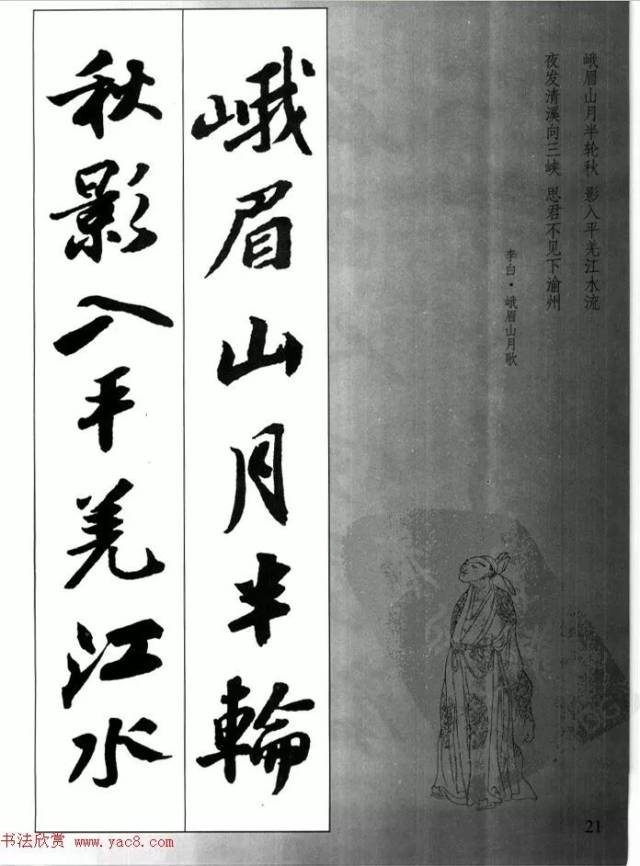 峨眉山月半轮秋 影入平羌江水流
夜发清溪向三峡 思君不见下渝州
李白·峨眉山月歌
峨眉山月半輪
秋影入平羌江水
21
书法欣赏 www.yac8.com